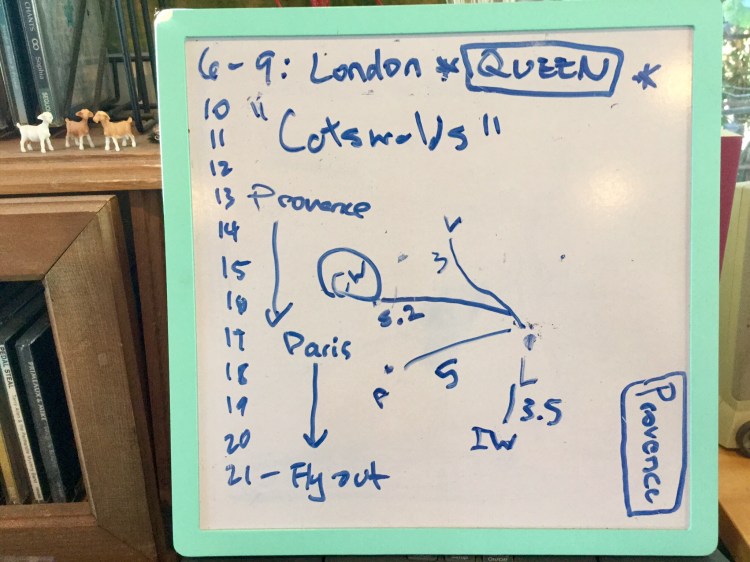 6-9: London * QUEEN *
10 "
11 Cotswolds"
12
13 Provence
14
15
16
17 Paris
18
19
20
21 - Fly out
V
3
5.2
P
5
3.5
IW
Provence
PEDAL STEEL